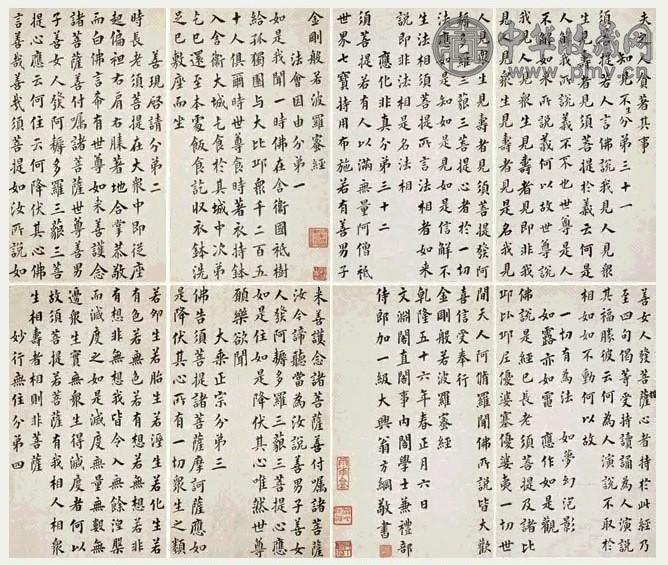 金剛般若波羅蜜經
法會因由分第一
如是我聞一時佛在舍衛國祇樹
給孤獨園与大比邱眾千二百五
十人俱爾時世尊食時著衣持鉢
入舍衛大城乞食於其城中次第
乞已還至本處飯食訖收衣鉢洗
足已敷座而坐
善現啟請分第二
時長老須菩提在大眾中即從座
起偏袒右肩右膝著地合掌恭敬
而白佛言希有世尊如来善護念
諸菩薩善付囑諸菩薩世尊善男
子善女人發阿耨多羅三藐三菩
提心應云何住云何降伏其心佛
言善哉善哉須菩提如汝所說如
来善護念諸菩薩善付囑諸菩薩
汝今諦聽當為汝說善男子善女
人發阿耨多羅三藐三菩提心應
如是住如是降伏其心唯然世尊
願樂欲聞
大乘正宗分第三
佛告須菩提諸菩薩摩訶薩應如
是降伏其心所有一切眾生之類
若卵生若胎生若溼生若化生若
有色若無色若有想若無想若非
有想非無想我皆令入無餘涅槃
而滅度之如是滅度無量無數無
邊眾生實無眾生得滅度者何以
故須菩提若菩薩有我相人相眾
生相壽者相則非菩薩
妙行無住分第四
夫之人貪著其事
知見不生分第三十一
須菩提若人言佛說我見人見眾
生見壽者見須菩提於意云何是
人解我所說義不不也世尊是人
不解如来所說義何以故世尊說
我見人見眾生見壽者見即非
我見人見眾生見壽者見是名我見
人見眾生見壽者見須菩提發阿
耨多羅三藐三菩提心者於一切
法應如是知如是見如是信解不
生法相須菩提所言法相者如来
說即非法相是名法相
應化非真分第三十二
須菩提若有人以滿無量阿僧祇
世界七寶持用布施若有善男子
善女人發菩薩心者持於此經乃
至四句偈等受持讀誦為人演說
其福勝彼云何為人演說不取於
相如如不動何以故
一切有為法 如夢幻泡影
如露亦如電 應作如是觀
佛說是經已長老須菩提及諸比
邱比邱尼優婆塞優婆夷一切世
間天人阿脩羅聞佛所說皆大歡
喜信受奉行
金剛般若波羅蜜經
乾隆五十六年春正月六日
文淵閣直閣事內閣學士兼禮部
侍郎加一級大興翁方綱敬書
中华收藏网